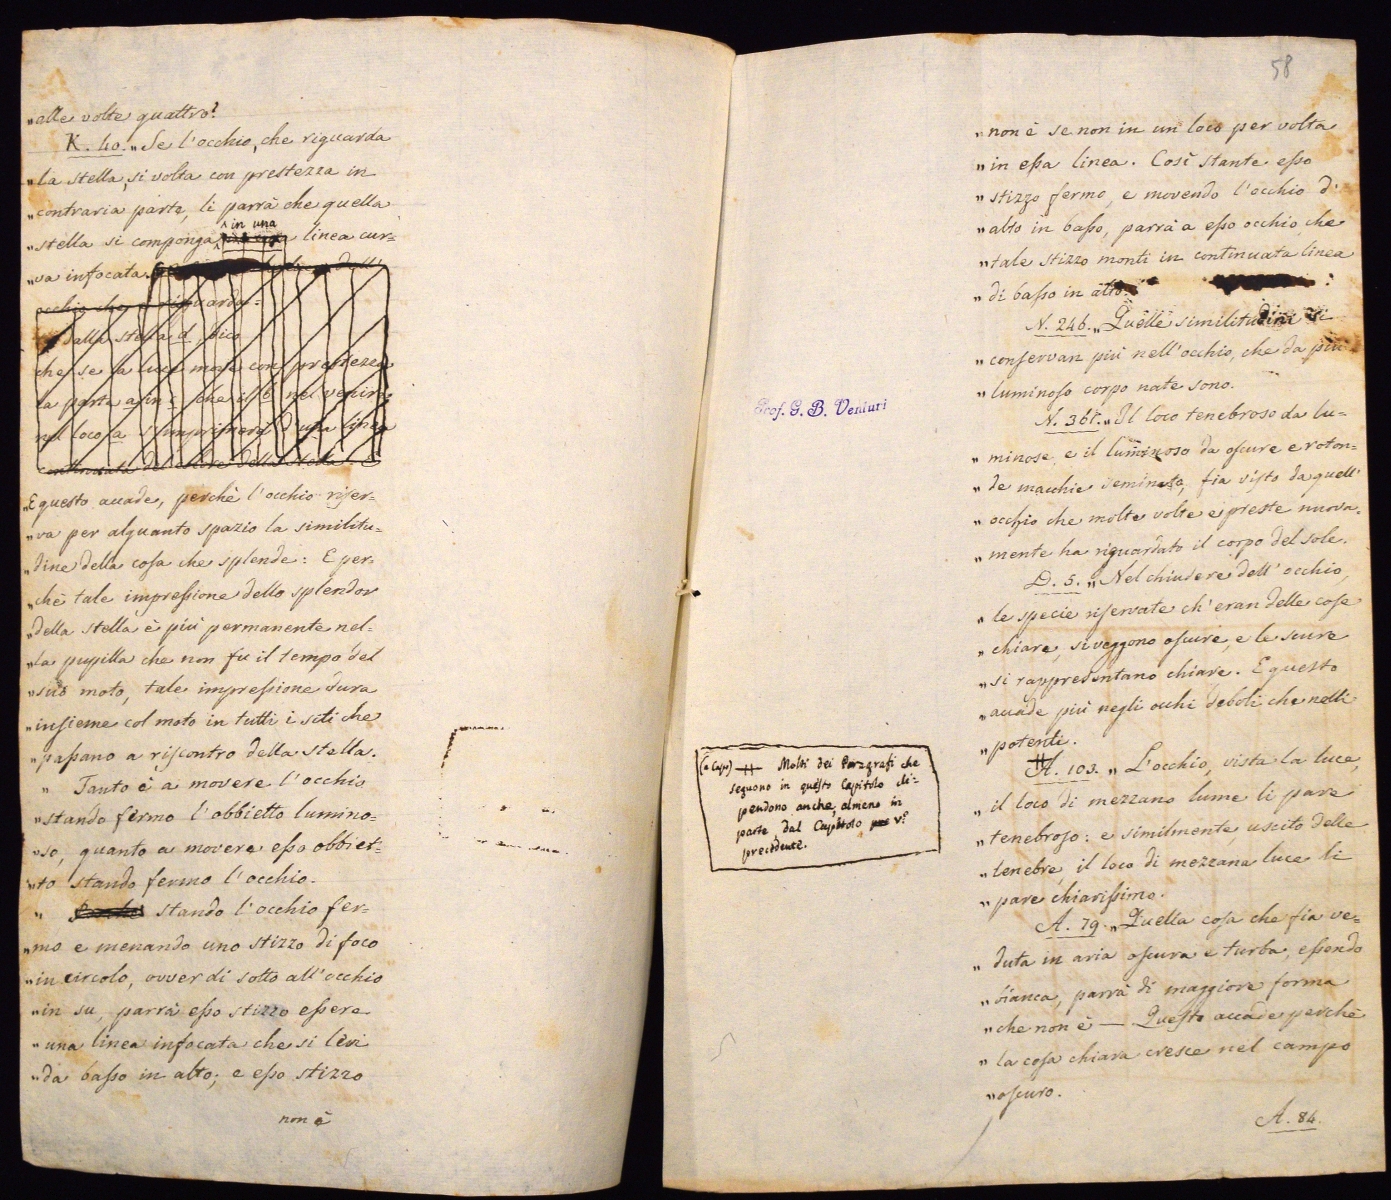 „alle volte quattro?
K. 40. „Se l'occhio, che riguarda
„la stella, si volta con prestezza in
„contraria parte, li parrà che quella
^ in una
„stella si componga linea cur=
„va infocata.
occhio che riguarda=
dalla stella d dico
che se la luce move con prestezza
la parte a in c che è b nel venire
nel loco a s'imprimerà d'una linea
continuata del colore della stella e
„E questo acade, perchè l'occhio riser=
„va per alquanto spazio la similitu=
„dine della cosa che splende: E per=
„chè tale impressione dello splendor
„della stella è più permanente nel=
„la pupilla che non fu il tempo del
„suo moto, tale impressione dura
„insieme col moto in tutti i siti che
„passano a riscontro della stella.
„ Tanto è a movere l'occhio
„stando fermo l'obbietto lumino=
„so, quanto a movere esso obbiet=
„to stando fermo l'occhio.
„ Perchè stando l'occhio fer=
„mo e menando uno stizzo di foco
„in circolo, ovver di sotto all'occhio
„in su, parrà esso stizzo essere
„una linea infocata che si levi
„da basso in alto; e esso stizzo
non è
58
„non è se non in un loco per volta
„in essa linea. Così stante esso
„stizzo fermo, e movendo l'occhio d'
„alto in basso, parrà a esso occhio che
„tale stizzo monti in continuata linea
„di basso in alto.
N. 246. „Quelle similitudini si
„conservan più nell'occhio, che da più
„luminoso corpo nate sono.
N. 367. „Il loco tenebroso da lu=
„minose, e il luminoso da oscure e roton=
„de macchie seminato, fia visto da quell'
„occhio che molte volte e preste nuova=
„mente ha riguardato il corpo del sole.
D. 5. „Nel chiudere dell'occhio,
„le specie riservate ch'eran delle cose
„chiare, si veggono oscure, e le scure
„si rappresentano chiare. E questo
„acade più negli occhi deboli che nelli
„potenti.
A. 103. „L'occhio, vista la luce,
„il loco di mezzano lume li pare
„tenebroso: e similmente, uscito delle
„tenebre, il loco di mezzana luce li
„pare chiarissimo.
A. 79. „Quella cosa che fia ve=
„duta in aria oscura e turba, essendo
„bianca, parrà di maggiore forma
„che non è — Questo accade perchè
„la cosa chiara cresce nel campo
„oscuro.
A. 84.
Prof. G. B. Venturi
(a Capo) Molti dei Paragrafi che
seguono in questo Capitolo di-
pendono anche, almeno in
parte dal Capitolo V.°
precedente.